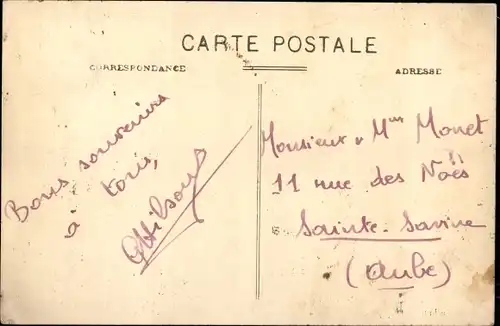 CARTE POSTALE
CORRESPONDANCE
ADRESSE
Bons souvenirs
à tous,
Monsieur, Mme Monet
11 rue des Noës
Sainte-Savine
(Aube)